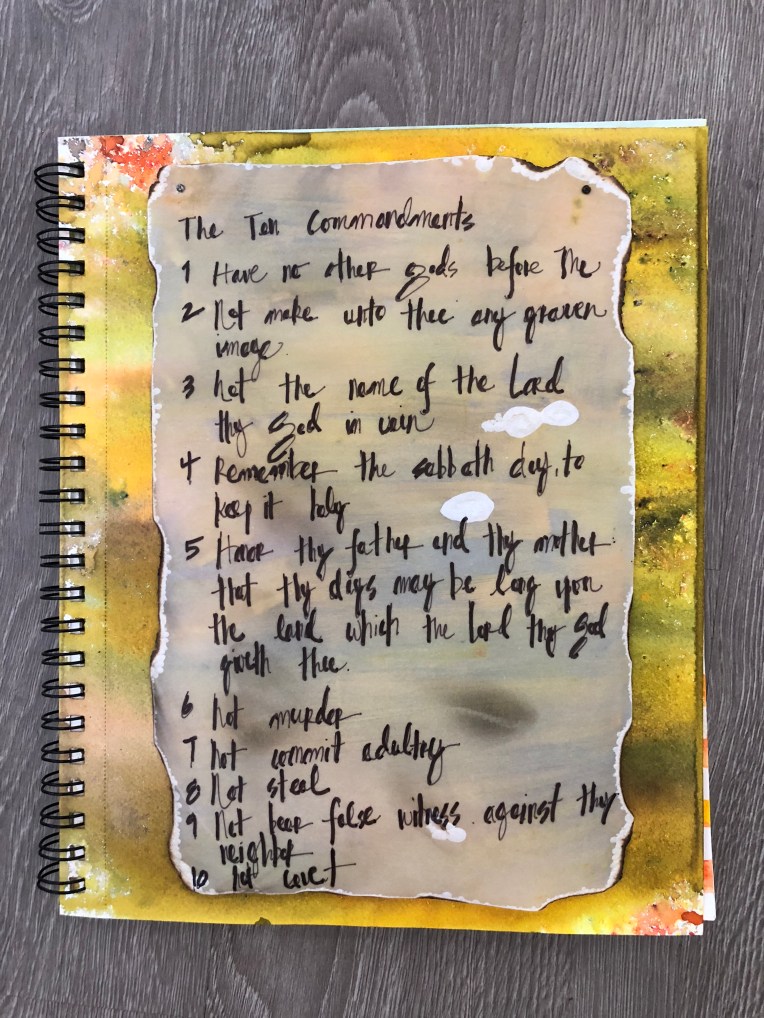 The Ten Commandments
1 Have no other gods before Me
2 Not make unto thee any graven
image.
3 Not the name of the Lord
thy God in vain
4 Remember the sabbath day, to
keep it holy
5 Honor thy father and thy mother
that thy days may be long upon
the land which the Lord thy God
giveth thee.
6 Not murder
7 Not commit adultry
8 Not steal
9 Not bear false witness against thy
neighbor
10 Not covet